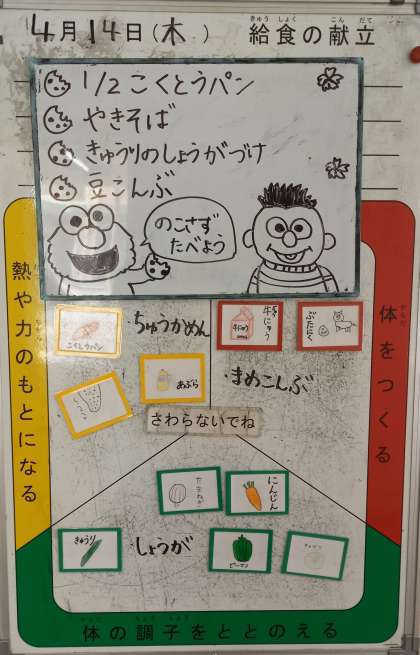 4月14日(木)
給食の献立
1/2こくとうパン
やきそば
きゅうりのしょうがづけ
豆こんぶ
のこさず
たべよう
熱や力のもとになる
体をつくる
こくとうパン
ちゅうかめん
牛にゅう
ぶたにく
あぶら
まめこんぶ
さわらないでね
たまねぎ
にんじん
きゅうり
しょうが
ピーマン
体の調子をととのえる